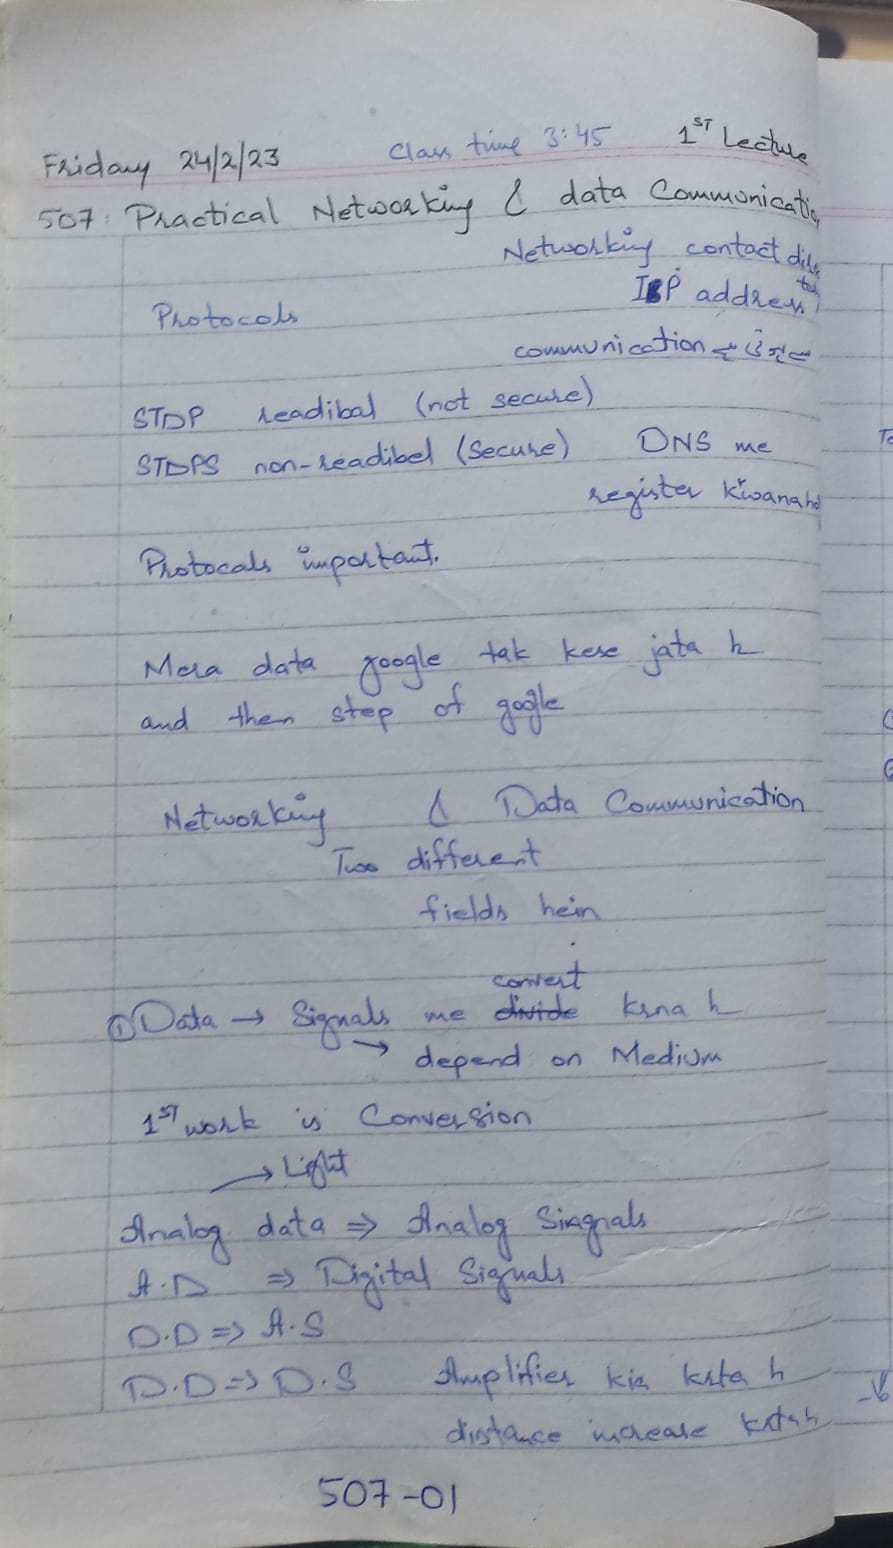 Friday 24/2/23 Class time 3:45 1ST Lecture
507: Practical Networking & data Communicatio
Networking contact
IP address
Protocols
communication
STDP readibal (not secure)
STDPS non-readibel (Secure) DNS me
register kiwana
Protocals important.
Mera data google tak kese jata h
and then step of google
Networking & Data Communication
Two different
fields hein
convert
① Data → Signals me divide krna h
→ depend on Medium
1ST work is Conversion
→ Light
Analog data ⇒ Analog Singnals
A.D ⇒ Digital Signals
D.D ⇒ A.S
D.D ⇒ D.S Amplifier kia krta h
distance increase krta h
507-01